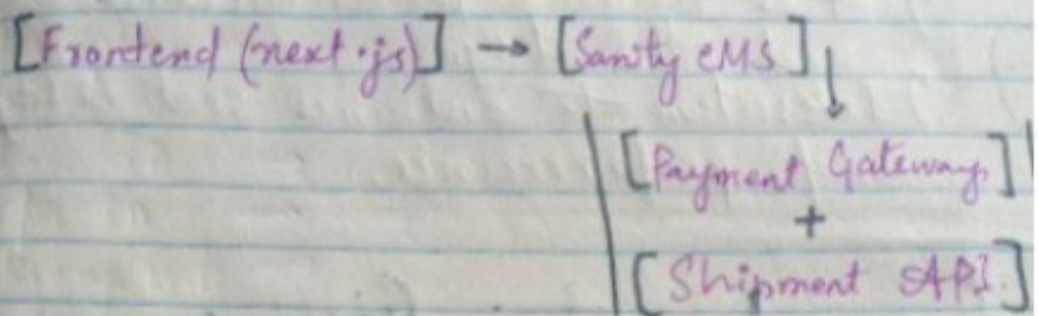 [Frontend (next.js)] → [Sanity CMS]
↓
[Payment Gateway]
+
[Shipment API]